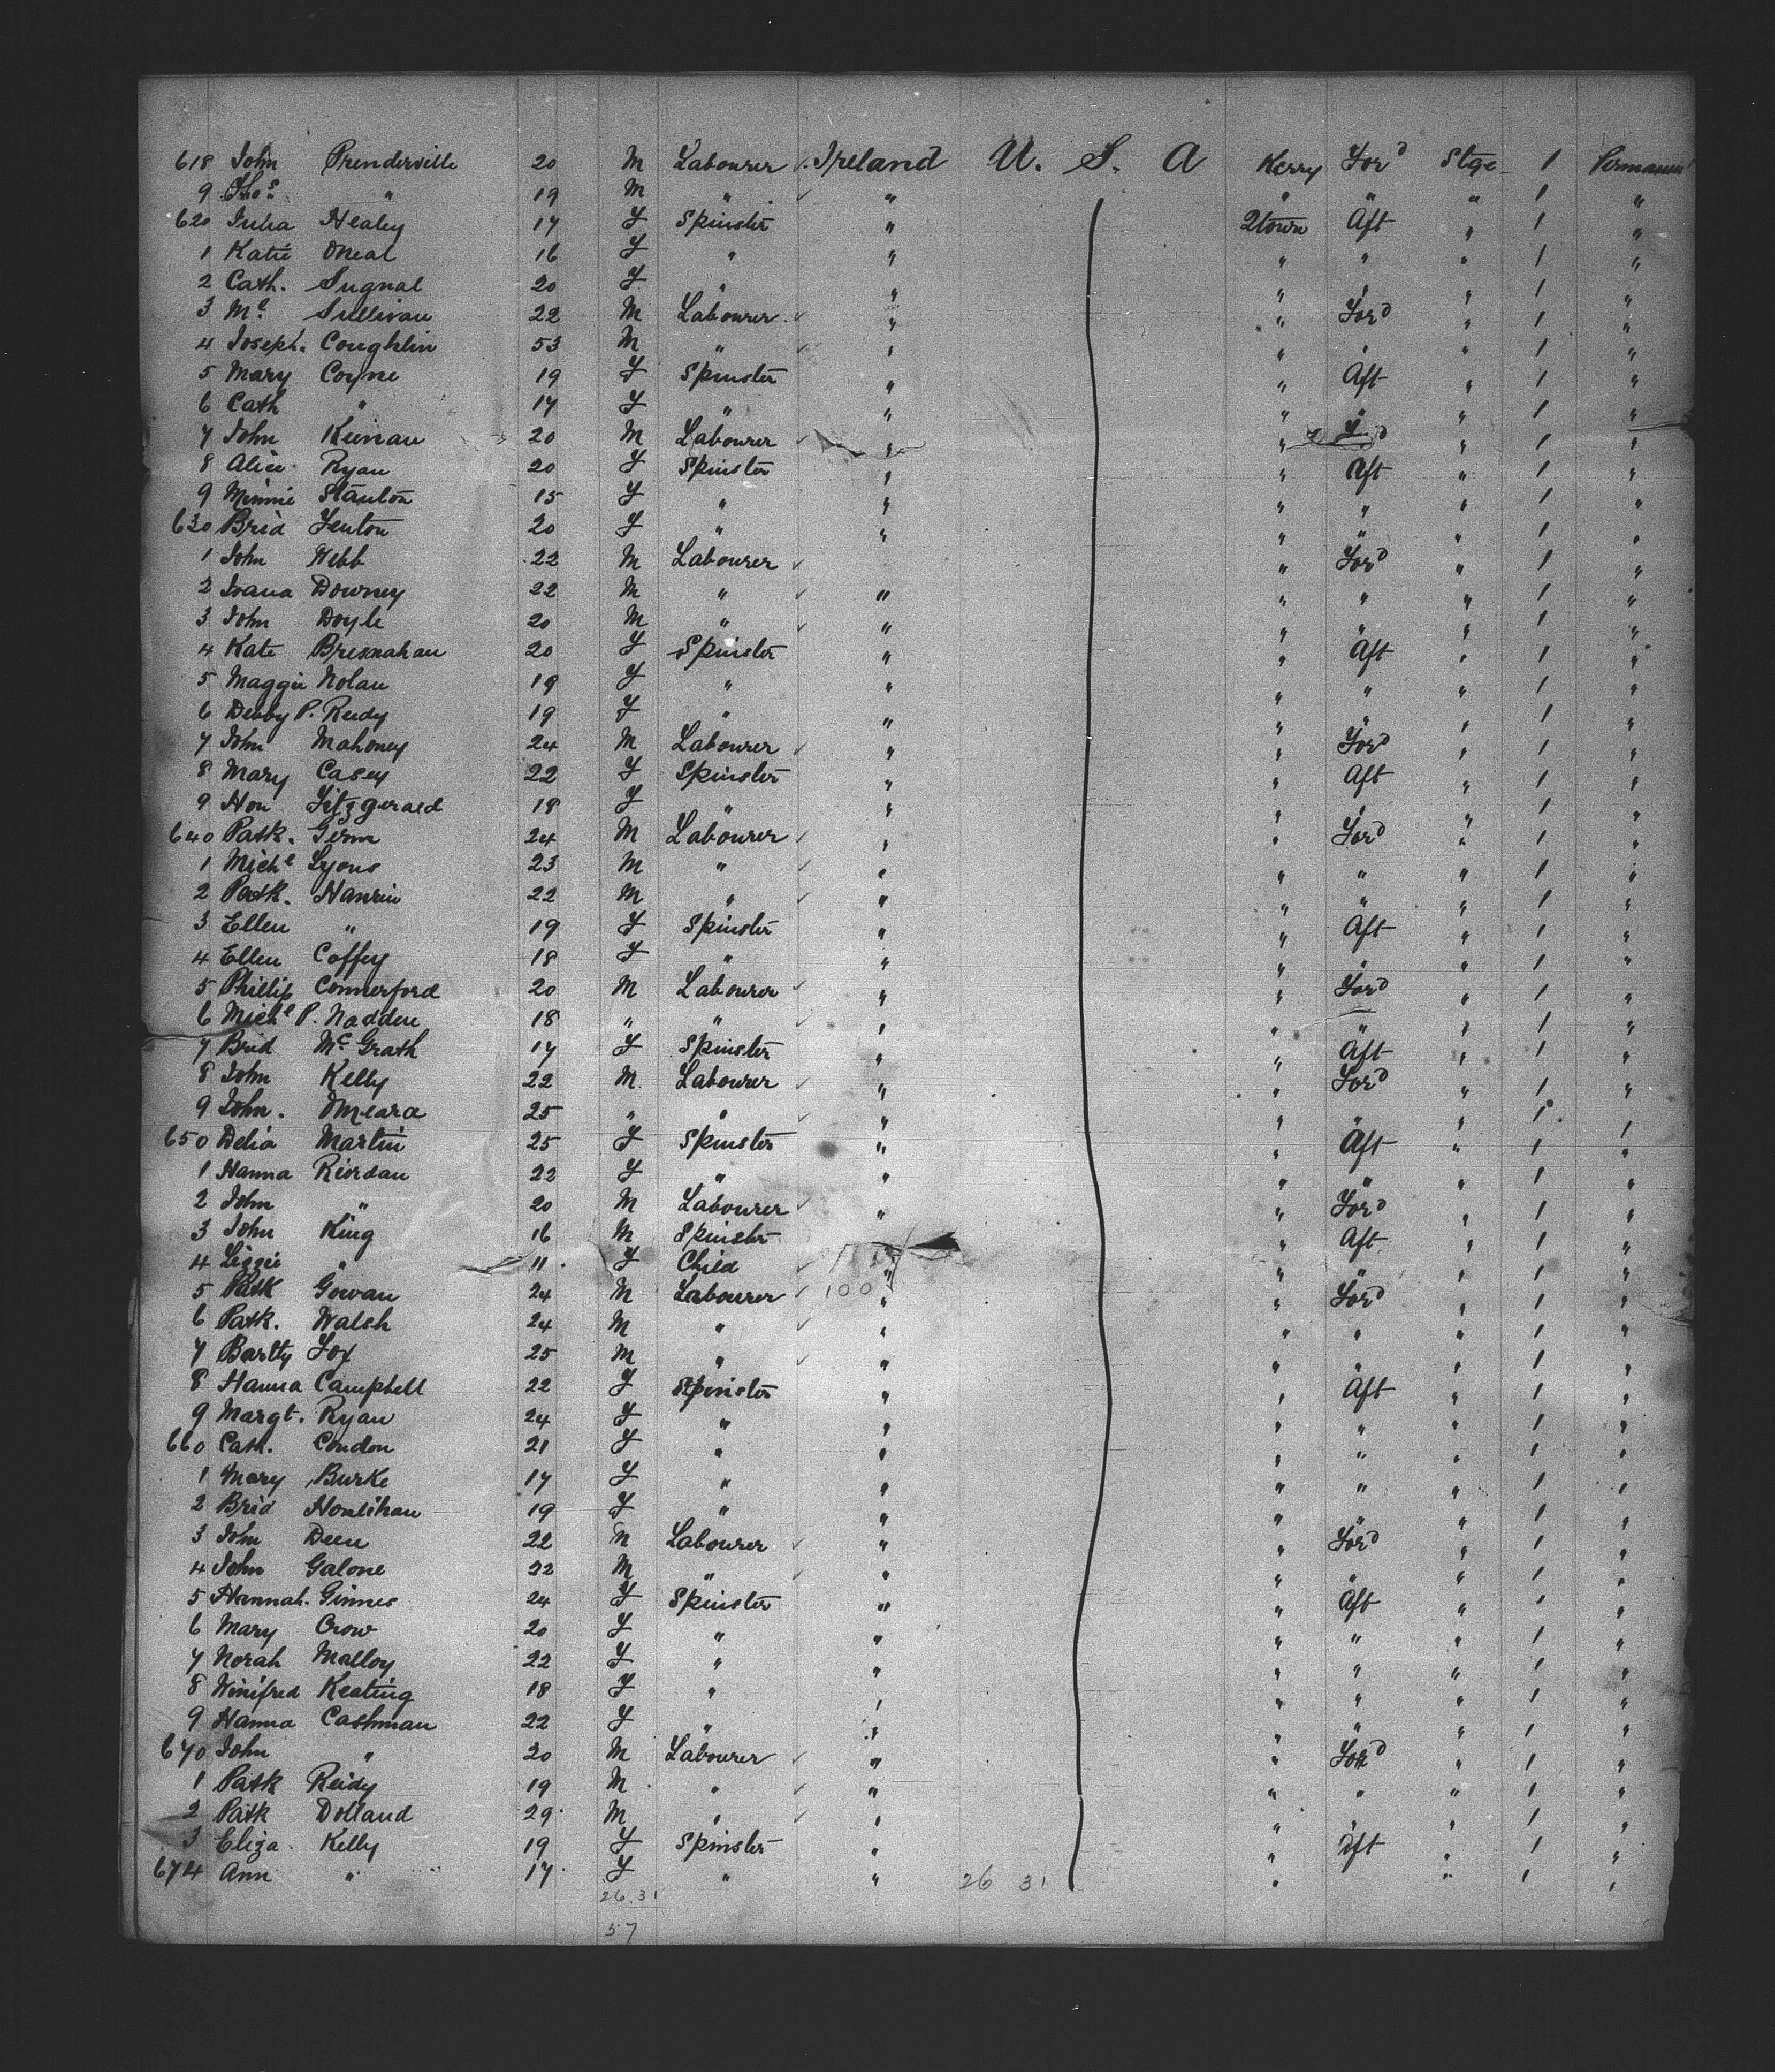 618 John Prenderville 20 M Labourer Ireland U. S. A Kerry Ford Stge 1 Permanent
9 Thos " 19 M " " " " " 1 "
620 Julia Healey 17 F Spinster " Qtown Aft " 1 "
1 Katie Oneal 16 F " " " " " 1 "
2 Cath. Sugnal 20 F " " " " " 1 "
3 Mc Sullivan 22 M Labourer " " Ford " 1 "
4 Joseph. Coughlin 53 M " " " " " 1 "
5 Mary Coyne 19 F Spinster " " Aft " 1 "
6 Cath " 17 F " " " " " 1 "
7 John Keenan 20 M Labourer " " Ford " 1 "
8 Alice Ryan 20 F Spinster " " Aft " 1 "
9 Minnie Stanton 15 F " " " " " 1 "
630 Brid Fenton 20 F " " " " " 1 "
1 John Webb 22 M Labourer " Ford " 1 "
2 Downey 22 M " " " " " 1 "
3 John Doyle 20 M " " " " " 1 "
4 Kate Bresnahan 20 F Spinster " " Aft " 1 "
5 Maggie Nolan 19 F " " " " " 1 "
6 Debby P. Reidy 19 F " " " " " 1 "
7 John Mahoney 24 M Labourer " " Ford " 1 "
8 Mary Casey 22 F Spinster " " Aft " 1 "
9 Hon Fitzgerald 18 F " " " " " 1 "
640 Patk. 24 M Labourer " " Ford " 1 "
1 Michl Lyons 23 M " " " " " 1 "
2 Patk. Hanrin 22 M " " " " " 1 "
3 Ellen " 19 F Spinster " " Aft " 1 "
4 Ellen Coffey 18 F " " " " " 1 "
5 Phillip Commerford 20 M Labourer " " Ford " 1 "
6 Michl P. Nadden 18 " " " " " " 1 "
7 Brid McGrath 17 F Spinster " " Aft " 1 "
8 John Kelly 22 M Labourer " " Ford " 1 "
9 John. Omeara 25 " " " " " " 1 "
650 Delia Martin 25 F Spinster " " Aft " 1 "
1 Hanna Riordan 22 F " " " " " 1 "
2 John " 20 M Labourer " " Ford " 1 "
3 John King 16 M Spinster " Aft " 1 "
4 Lizzie " 11 F Child " " " " 1 "
5 Patk Gowan 24 M Labourer 100 " " Ford " 1 "
6 Patk. Walsh 24 M " " " " " 1 "
7 Bartty Fox 25 M " " " " " 1 "
8 Hanna Campbell 22 F Spinster " " Aft " 1 "
9 Margt. Ryan 24 F " " " " " 1 "
660 Cath. Condon 21 F " " " " " 1 "
1 Mary Burke 17 F " " " " " 1 "
2 Brid Houlihan 19 F " " " " " 1 "
3 John Deen 22 M Labourer " " Ford " 1 "
4 John Galone 22 M " " " " " 1 "
5 Hannah. Ginnes 24 F Spinster " " Aft " 1 "
6 Mary Crow 20 F " " " " " 1 "
7 Norah Malloy 22 F " " " " " 1 "
8 Winifred Keating 18 F " " " " " 1 "
9 Hanna Cashman 22 F " " " " " 1 "
670 John " 20 M Labourer " " Ford " 1 "
1 Patk Reidy 19 M " " " " " 1 "
2 Patk Dolland 29 M " " " " " 1 "
3 Eliza. Kelly 19 F Spinster " " Aft " 1 "
674 Ann " 17 F " " 26 31 " " 1 "
26.31
57